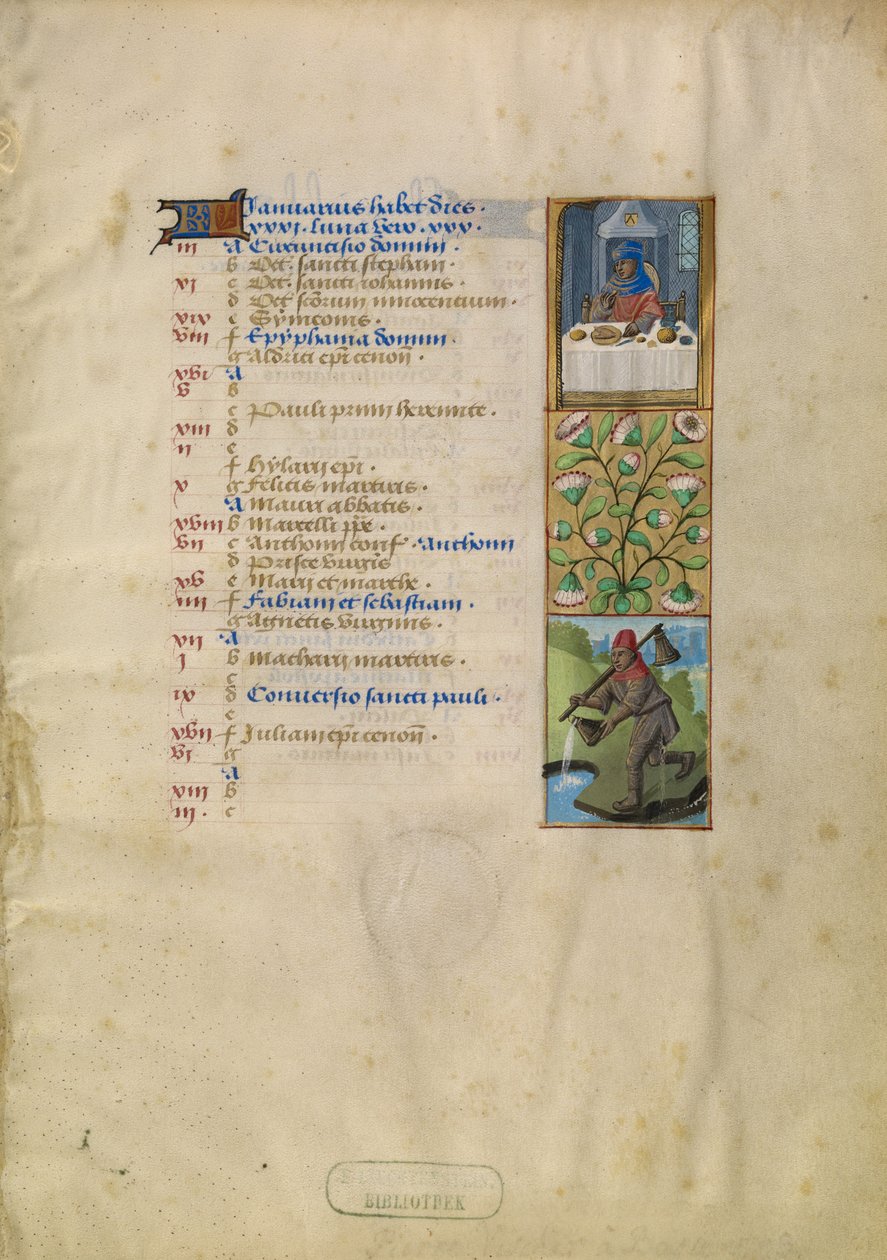 1
KL Januarius habet dies
xxxi. luna vero. xxx.
iii A Circuncisio domini.
b Oct. sancti stephani.
xi c Oct. sancti iohannis.
d Oct scorum innocentium.
xix e Symeonis.
viii f Epyphania domini.
g Aldrici epi cenon.
xvi A
v b
c Pauli primi heremite.
xiii d
ii e
f hylarij epi.
x g felicis martiris.
A Mauri abbatis.
xviii b Marcelli ppe.
vii c Anthonij conf. Anthonij
d Prisce virgis
xv e Marij et marthe.
iiii f Fabiani et sebastiani.
g Agnetis virginis.
xii A
j b Macharij martiris.
c
ix d Conversio sancti pauli.
e
xvii f Juliani epi cenon.
vi g
A
xiiii b
iii. c
BIBLIOTHEK